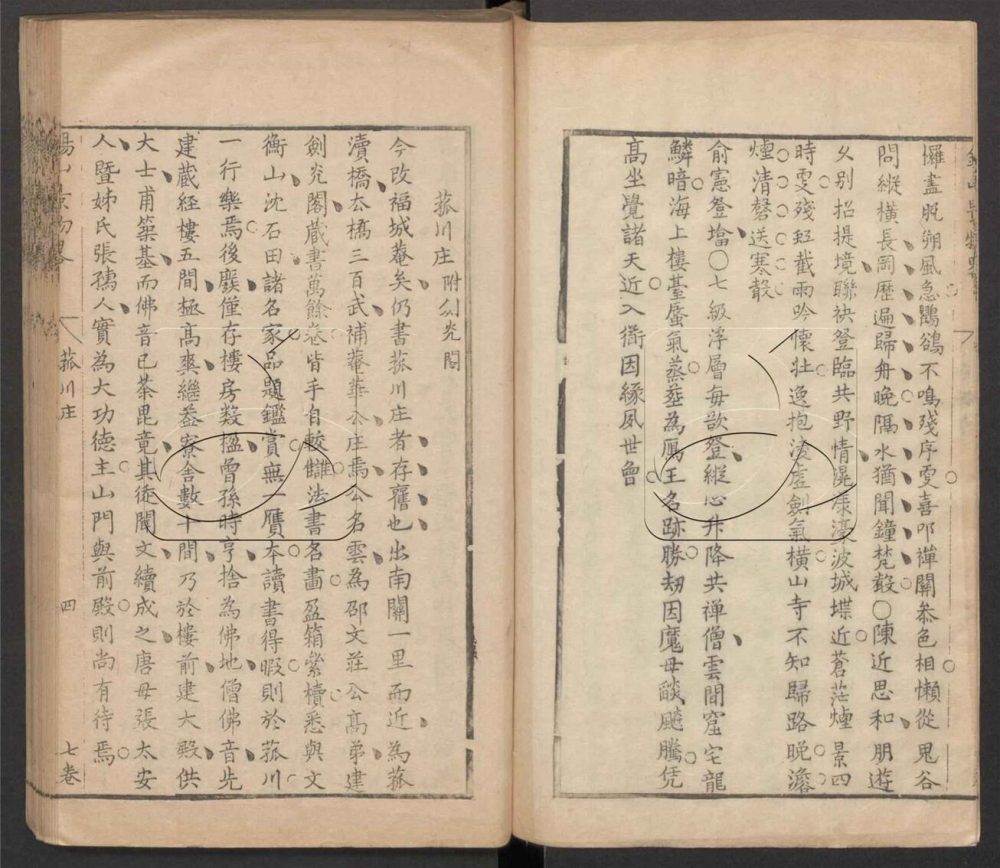 儸盡脫朔風急鸎鴿不鳴殘序雯喜叩禪關叅色相懶從鬼谷
問縱橫長岡歷遍歸舟晚隔水猶聞鐘梵聲〇陳近思和朋遊
乆别招提境聯袂登臨共野情濠波城堞近蒼茫煙景四
時雯殘虹截雨吟懷壯逸抱凌虛劍氣橫山寺不知歸路晚澹
煙清磬送寒聲
俞憲登墖〇七級浮層每欲登縱心升降共禅僧雲間窟宅龍
鱗暗海上樓臺蜃氣蒸莖為鳳王名跡勝刼因魔母皾颷騰凭
高坐覺諸天近入衕因緣夙世會
菰川庄附劍光閣
今改福城菴矣仍書菰川庄者存舊也出南關一里而近為菰
瀆橋去橋三百武補菴華公庄焉公名雲為邵文莊公高弟建
劍光閣蔵書萬餘卷皆手自較讎法書名畫盈箱縈櫝悉與文
衡山沈石田諸名家品題鑑賞無一贋本讀書得暇則於菰川
一行樂焉後廢僅存樓房数楹曾孫時亨捨為佛地僧佛音先
建蔵经樓五間極高爽繼葢寮舍數十間乃於樓前建大殿供
大士甫築基而佛音已荼毘竟其徒聞文續成之唐母張太安
人暨姊氏張孺人實為大功德主山門與前殿則尚有待焉
菰川庄
四
七卷